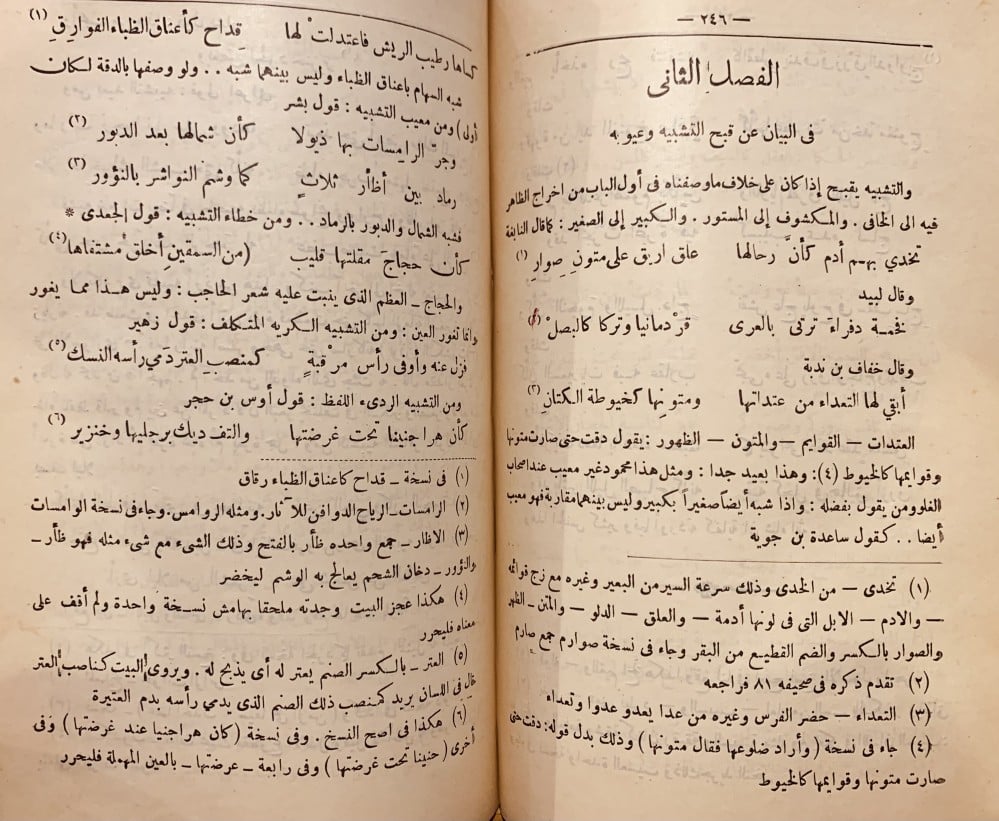 — ٢٤٦ —
الفصل الثانى
فى البيان عن قبح التشبيه وعيوبه
والتشبيه يقبح إذا كان على خلاف ماوصفناه فى أول الباب من اخراج الظاهر
فيه الى الخافى . والمكشوف إلى المستور . والكبير إلى الصغير : كماقال النابغة
تخدي بهم أدم كأنَّ رحالها علق اريق على متون صوار (١)
وقال لبيد
فخمة دفراء ترتى بالعرى قردمانيا وتركا كالبصل (٢)
وقال خفاف بن ندبة
أبقي لها التعداء من عتداتها ومتونها كخيوطة الكتان (٣)
العتدات — القوايم — والمتون — الظهور : يقول دقت حتى صارت متونها
وقوايمها كالخيوط (٤) : وهذا بعيد جدا : ومثل هذا محمود غير معيب عند اصحاب
الغلو ومن يقول بفضله : واذا شبه أيضاً صغيراً بكبير وليس بينهما مقاربة فهو معيب
أيضا . . كقول ساعدة بن جوية
(١) تخدى — من الخدى وذلك سرعة السير من البعير وغيره مع زج قوائمه
— والادم — الابل التى فى لونها أدمة — والعلق — الدلو — والمتن — الظهر
والصوار بالكسر والضم القطيع من البقر وجاء فى نسخة صوارم جمع صارم
(٢) تقدم ذكره فى صحيفه ٨١ فراجعه
(٣) التعداء — حضر الفرس وغيره من عدا يعدو عدوا وتعداء
(٤) جاء فى نسخة ( وأراد ضلوعها فقال متونها ) وذلك بدل قوله : دقت حتى
صارت متونها وقوايمها كالخيوط
كساها رطيب الريش فاعتدلت لها قداح كأعناق الظباء الفوارق (١)
شبه السهام باعناق الظباء وليس بينهما شبه . . ولو وصفها بالدقة لكان
أولى ) ومن معيب التشبيه : قول بشر
وجرّ الرامسات بها ذيولا كأن شمالها بعد الدبور (٢)
رماد بين أظآر ثلاثٍ كما وشم النواشر بالنؤور (٣)
فشبه الشمال والدبور بالرماد . . ومن خطاء التشبيه : قول الجعدى *
كأن حجاجَ مقلتها قليب (من السمقين أخلق مشتفاها (٤)
والحجاج ـ العظم الذى ينبت عليه شعر الحاجب : وليس هذا مما يغور
وانما تغور العين : ومن التشبيه الكريه المتكلف : قول زهير
فزل عنه وأوفى رأس مرقبةٍ كمنصبِ العتر دَمي رأسه النسك (٥)
ومن التشبيه الردىء اللفظ : قول أوس بن حجر
كأن هرا جنيبًا تحت غرضتها والتف ديك برجليها وخنزير (٦)
(١) فى نسخة ـ قداح كاعناق الظباء رقاق
(٢) الرامسات ـ الرياح الدوافن للآثار . ومثله الروامس . وجاء فى نسخة الوامسات
(٣) الاظار ـ جمع واحده ظأر بالفتح وذلك الشىء مع شىء مثله فهو ظأر ـ
والنؤور ـ دخان الشحم يعالج به الوشم ليخضر
(٤) هكذا عجز البيت وجدته ملحقا بهامش نسخة واحدة ولم أقف على
معناه فليحرر
(٥) العتر ـ بالكسر الصنم يعتر له أى يذبح له . ويروى البيت كناصب العتر
قال فى اللسان يريد كمنصب ذلك الصنم الذى يدمي رأسه بدم العتيرة
(٦) هكذا فى اصح النسخ . وفى نسخة ( كان هرا جنيا عند غرضتها ) وفى
أخرى ( حنينا تحت غرضتها ) وفى رابعة ـ عرضتها ـ بالعين المهملة فليحرر